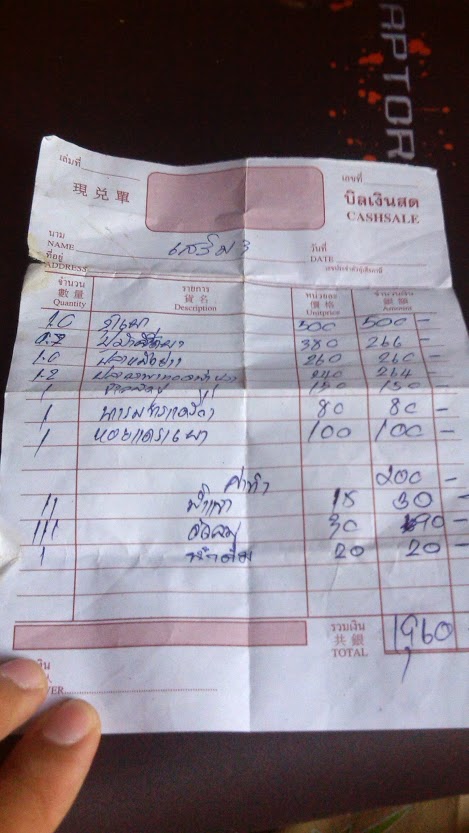 APTOR
เล่มที่
เลขที่
現兌單
บิลเงินสด
CASHSALE
นาม
NAME
เสริม 3
วันที่
DATE
ที่อยู่
ADDRESS
เลขประจำตัวผู้เสียภาษี
จำนวน รายการ หน่วยละ จำนวนเงิน
數量 貨名 價格 銀額
Quantity Description Unitprice Amount
1.0 ปูเผา 500 500 -
0.7 380 266 -
1.0 260 260 -
1.2 264 -
1 150 150 -
1 80 80 -
1 หอยแครงเผา 100 100 -
ค่าทำ 200 -
11 น้ำเปล่า 15 30 -
111 30 90 -
1 20 20 -
รวมเงิน
共銀
TOTAL
1960 -